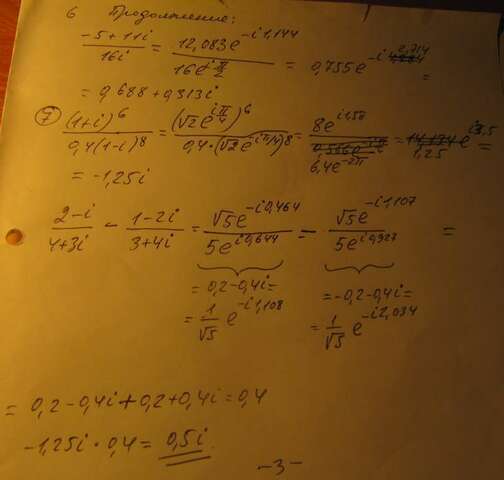 6 Продолжение:
(-5+11i)/(16i) = (12,083e^(-i1,144))/(16e^(iπ/2)) = 0,755e^(-i2,714) =
= 0,688+0,313i
⑦ (1+i)^6/(0,4(1-i)^8) = (√2e^(iπ/4))^6/(0,4·(√2e^(iπ/4))^8) = 8e^(i1,5π)/(6,4e^(-2π)) = 1,25e^(i3,5) =
= -1,25i
(2-i)/(4+3i) - (1-2i)/(3+4i) = (√5e^(-i0,464))/(5e^(i0,644)) - (√5e^(-i1,107))/(5e^(i0,927)) =
= 0,2-0,4i= = -0,2-0,4i=
= (1/√5) e^(-i1,108) = (1/√5) e^(-i2,034)
= 0,2-0,4i+0,2+0,4i=0,4
-1,25i·0,4= 0,5i
-3-